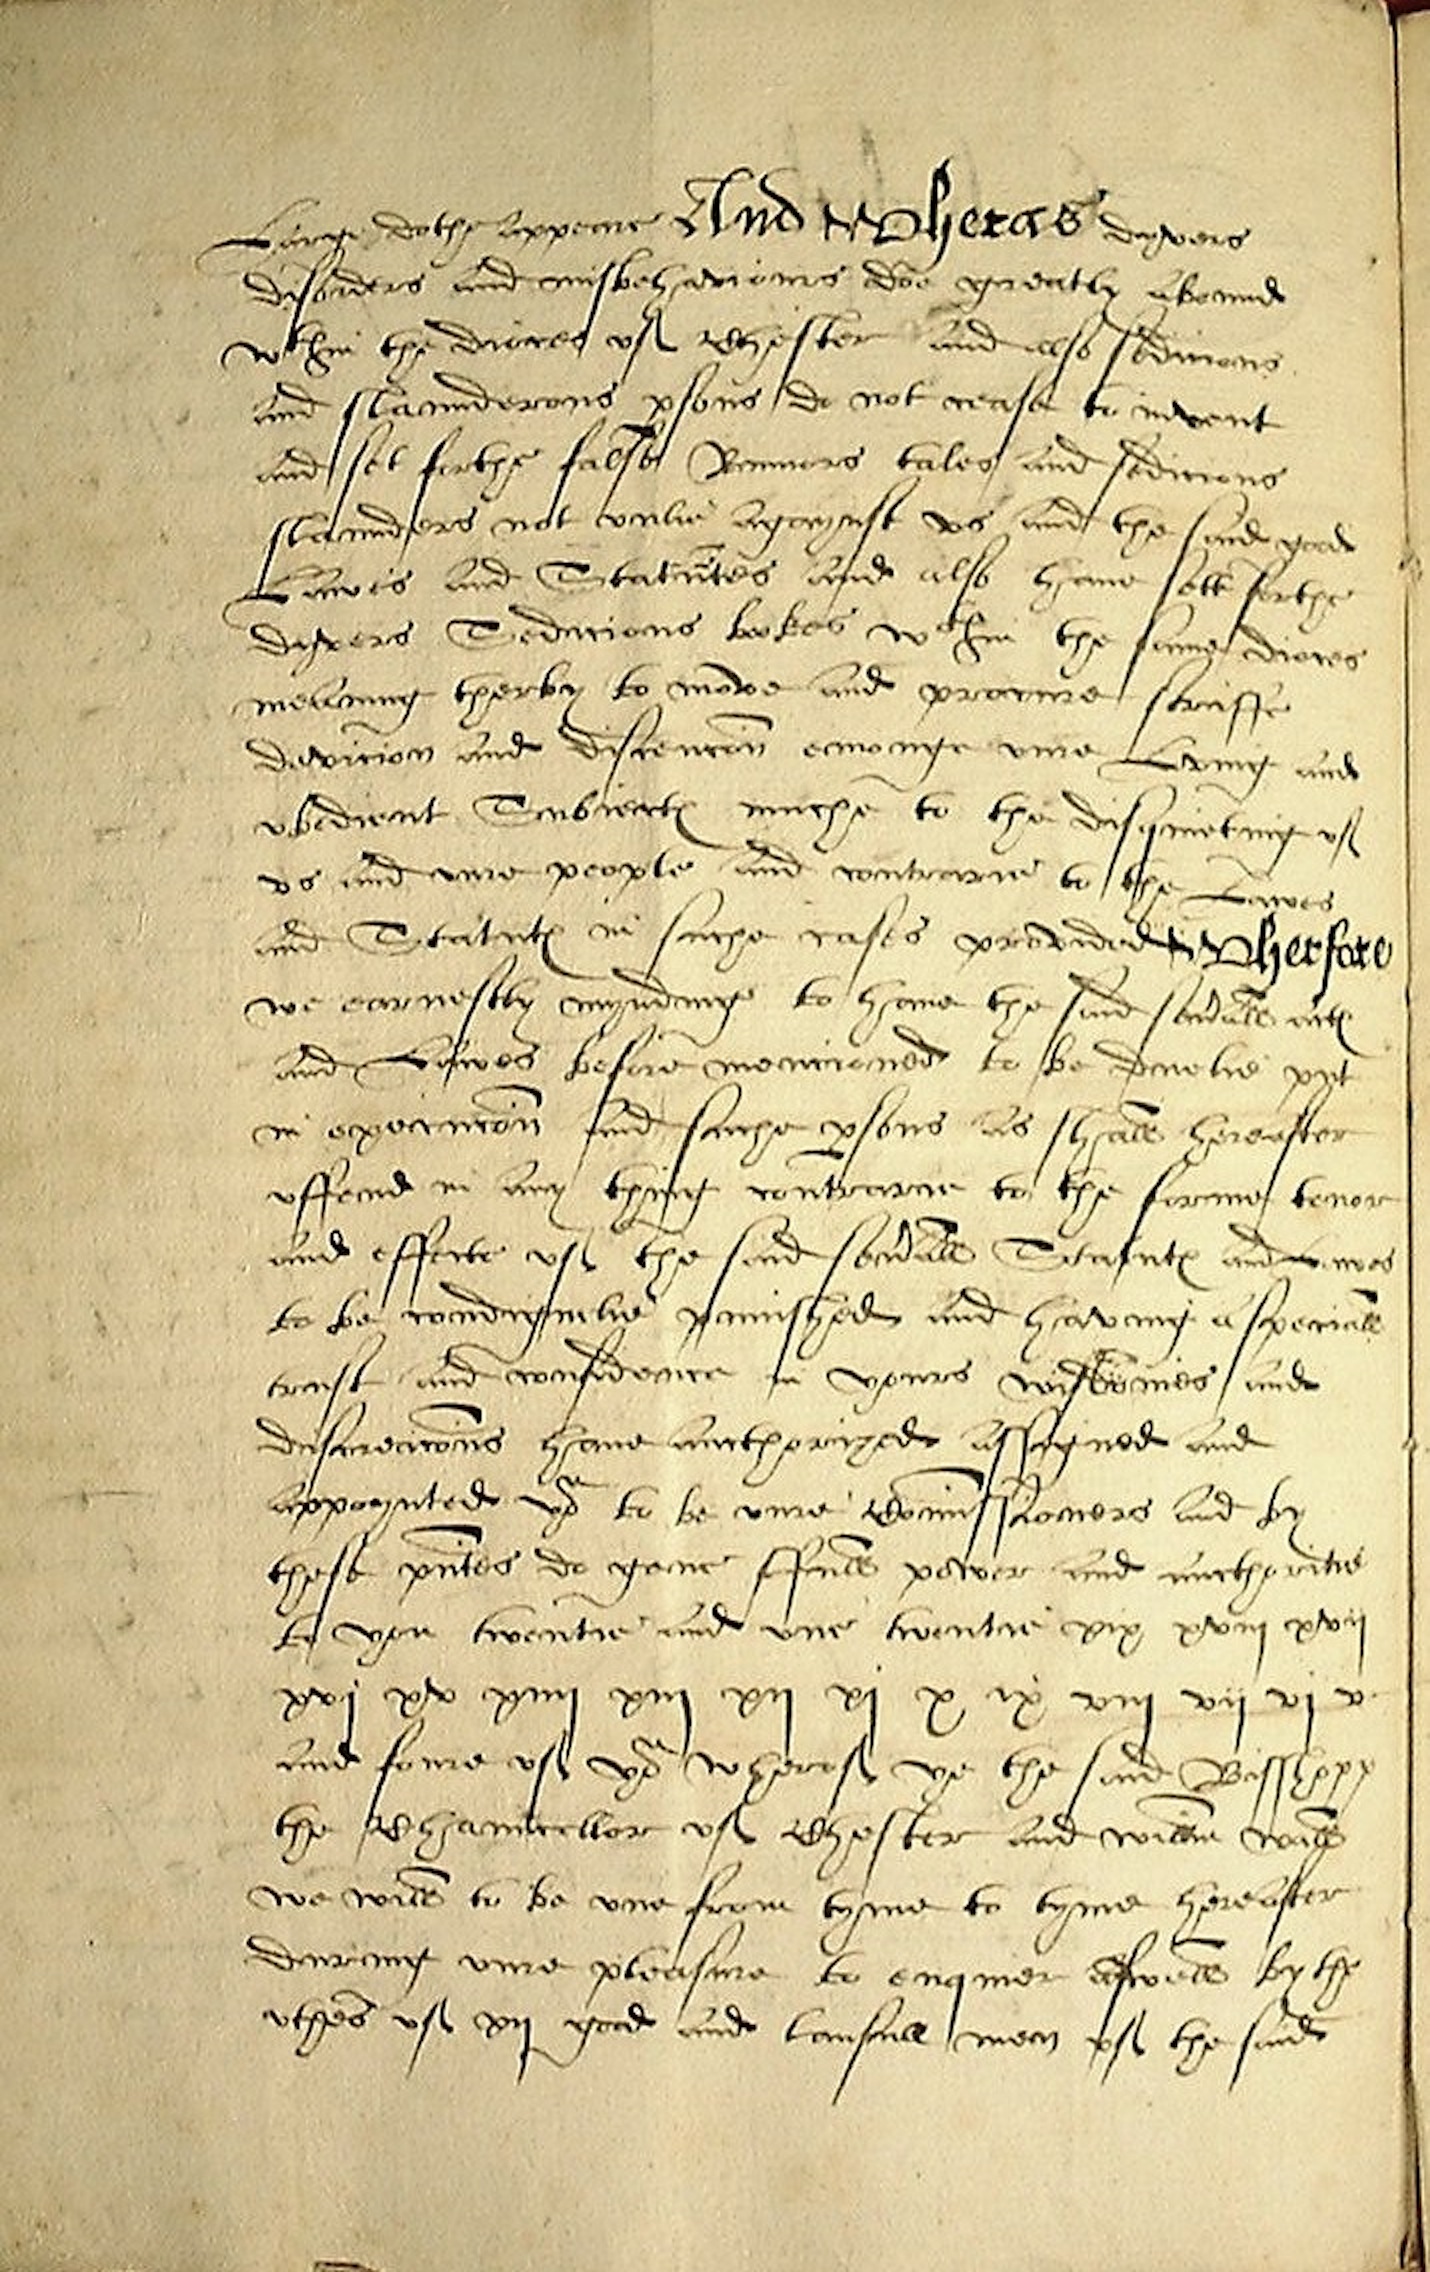 Large dothe appeare And Wheras dyvers
disorders and misbehaviours doe greatly abound
wthin the dioces of Chester and also sedicious
and slaunderous psons do not cease to invent
and set forthe false Rumors tales and sedicious
slaunders not onlie agaynst us and the said good
Lawes and Statutes and also haue sett forthe
dyvers Sedicious bookes wthin the same dioces
meaning therby to move and procure striffe
devicion and discencon emonge oure Loving and
obedient Subiects muche to the disquieting of
us and oure people and contrarie to the Lawes
and Statuts in suche cases provided Wherfore
we earnestly myndinge to haue the said seuall acts
and Lawes before mencioned to be duelie put
in execucon and suche psons as shall hereafter
offend in any thing contrarie to the forme tenor
and effecte of the said seuall Statuts and Lawes
to be condignlie punished and having a speciall
trust and confidence in youre wisdomes and
discrecons haue aucthorized assigned and
appoynted you to be oure Comissioners and by
these pntes do geue ffull power and aucthoritie
to you twentie and one twentie xix xviii xvii
xvj xv xiiij xiij xij xj x ix viij vij vj v
and foure of you wherof ye the said Bisshopp
the Chauncellor of Chester and Willm
we will to be one from tyme to tyme hereafter
during oure pleasure to enquier aswell by the
othes of xij good and laufull men of the said